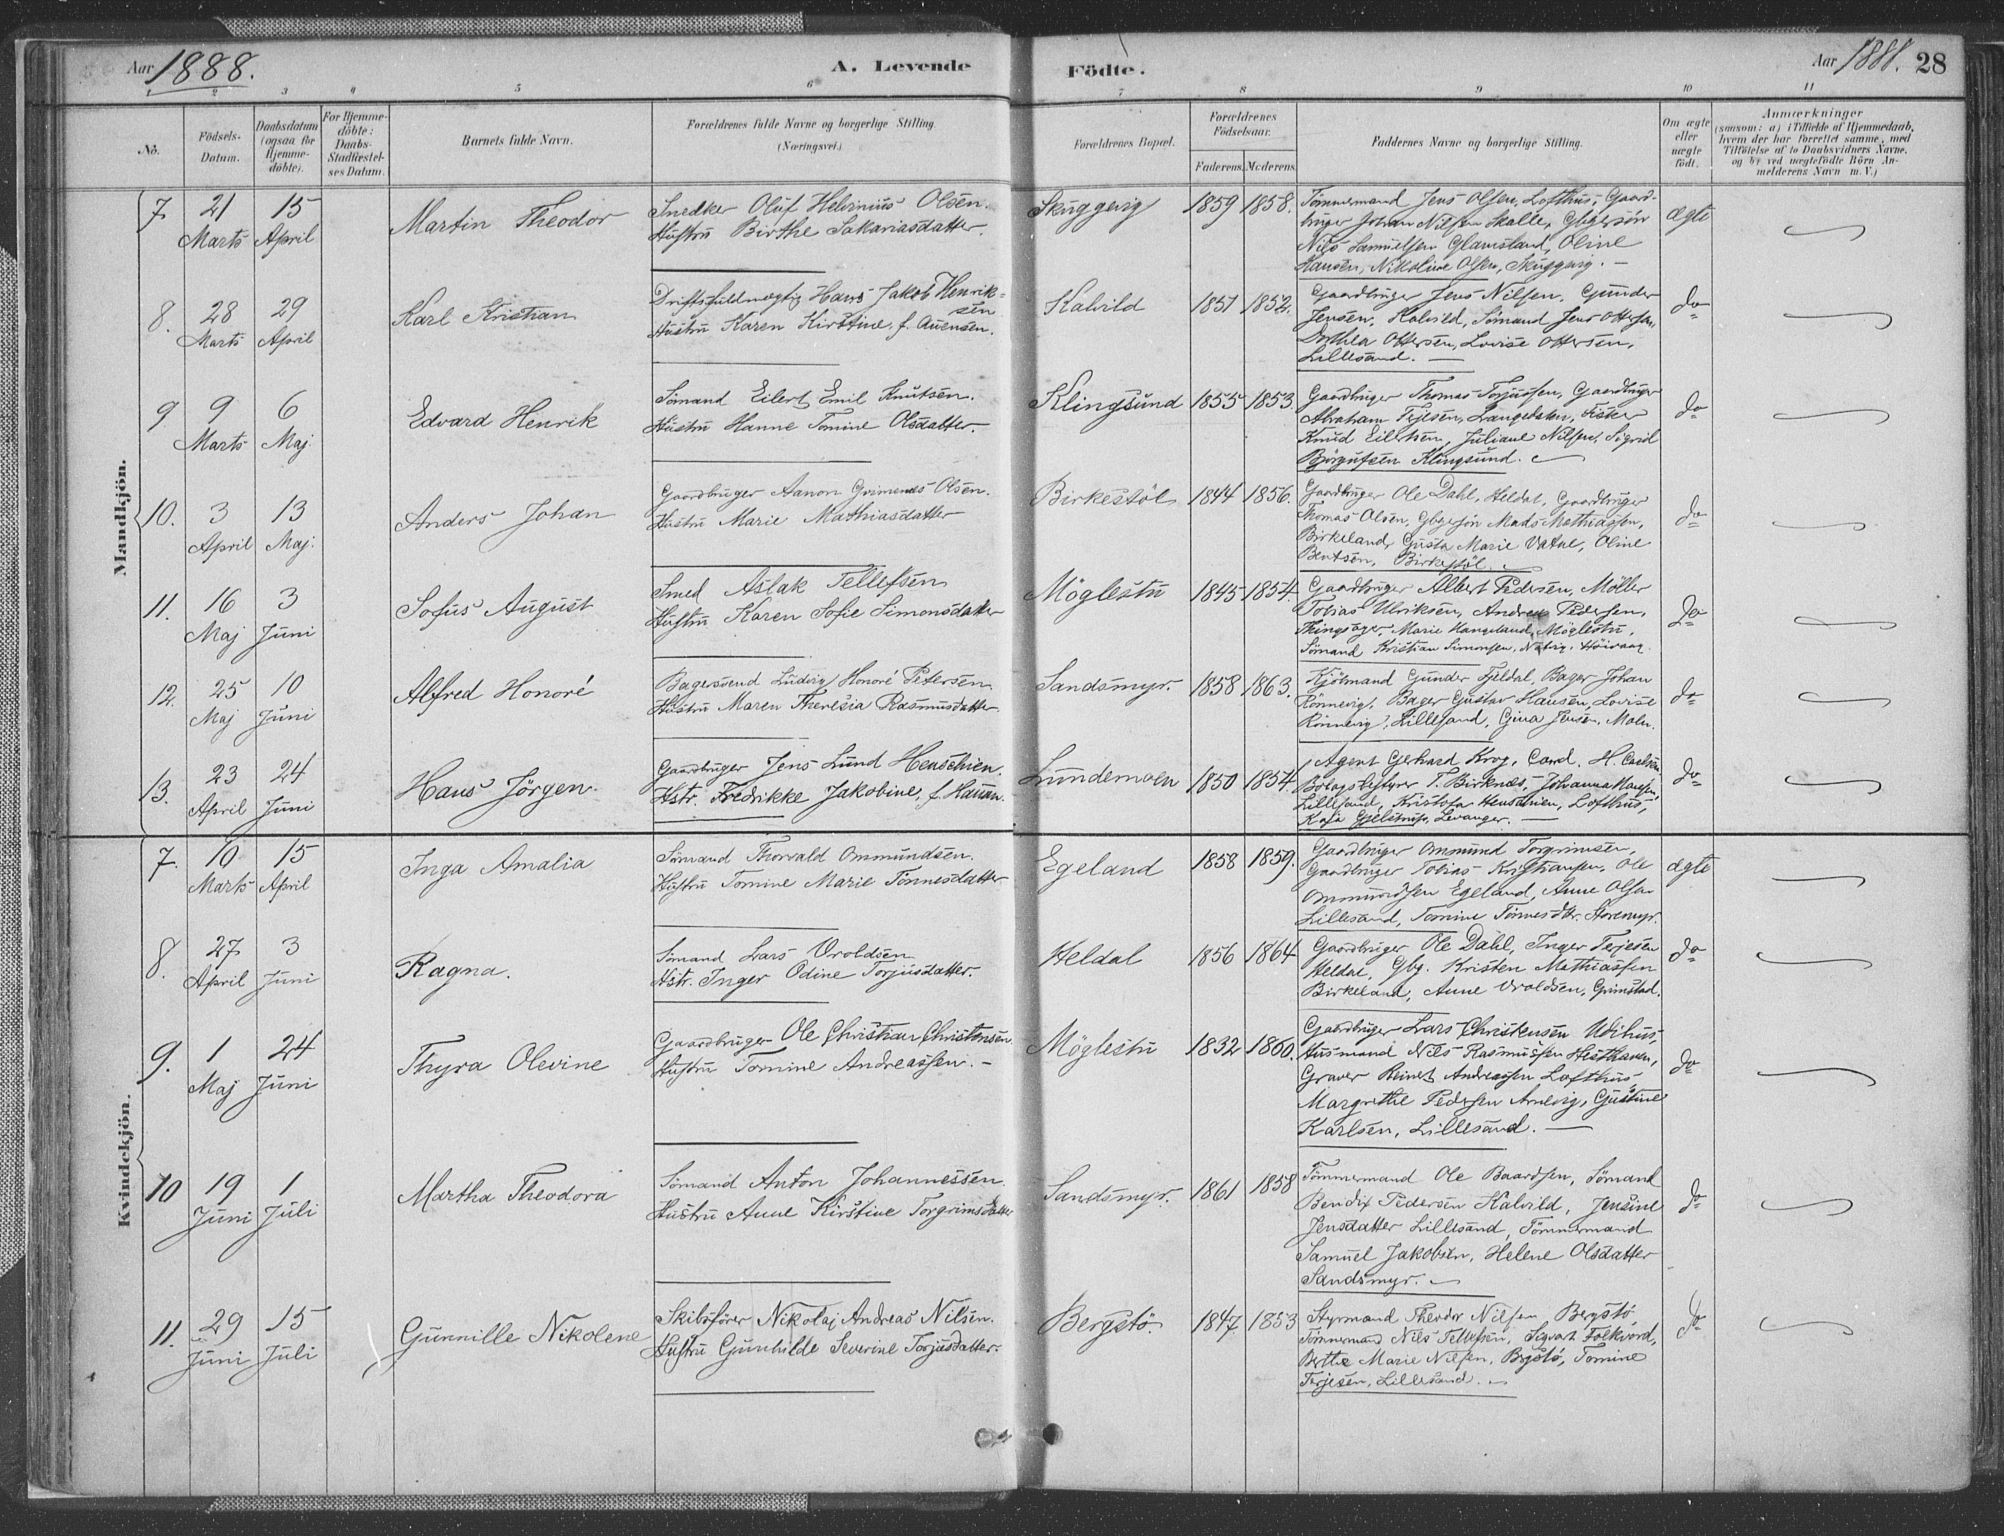 Aar 1888. A. Levende Födte. Aar 1888. 28
1 2 3 4 5 6 7 8 9 10 11
No. Födsels-Datum. Daabsdatum (ogsaa for Hjemme-döbte). For Hjemme-döbte: Daabs-Stadfæstel-ses Datum. Barnets fulde Navn. Forældrenes fulde Navne og borgerlige Stilling. (Næringsvei.) Forældrenes Bopæl. Forældrenes Födselsaar. Faderens. Moderens. Faddernes Navne og borgerlige Stilling. Om ægte eller uægte födt. Anmærkninger (saasom: a) i Tilfælde af Hjemmedaab, hvem der har forrettet samme, med Tilföielse af to Daabsvidners Navne, og b) ved uægtefödte Börn An-melderens Navn m. V.)
Mandkjön.
7. 21 Marts 15 April Martin Theodor
Snedker Oluf Helvinius Olsen.
Hustru Birthe Sakariasdatter.
Skuggevig 1859 1858.
Tømmermand Jens Olsen, Lofthus, Gaard-
bruger Johan Nilsen Skalle, Gbgersøn
Nils Samuelsen Glamsland, Oline
Hansen, Nikoline Olsen, Skuggevig. —
ægte
8. 28 Marts 29 April Karl Kristian
Driftsfuldmægtig Hans Jakob Henrik-
sen
Hustru Karen Kirstine, f. Auensen.
Kalvild 1851 1852.
Gaardbruger Jens Nilsen, Gunder
Jensen, Kalvild, Sømand Jens Ottersen,
Dorthea Ottersen, Lovise Ottersen,
Lillesand. —
do
9 9 Marts 6 Maj Edvard Henrik
Sømand Eilert Emil Knutsen.
Hustru Hanne Tomine Olsdatter.
Klingsund 1855 1853.
Gaardbruger Thomas Torjussen, Gaardbruger
Abraham Terjesen, Langedalen, Fisker
Knud Eilertsen, Juliane Nilsen, Sigrid
Bjørgufsen Klingsund.
do
10. 3 April 13 Maj. Anders Johan
Gaardbruger Aanon Grimenes Olsen.
Hustru Marie Mathiasdatter
Birkestöl 1844 1856.
Gaardbruger Ole Dahl, Heldal, Gaardbruger
Thomas Olsen, Gbgersøn Mads Mathiassen,
Birkeland, Gusta Marie Vatne, Oline
Bentsen, Birkestöl.
do
11. 16 Maj 3 Juni Sofus August
Smed Aslak Tellefsen
Hustru Karen Sofie Simonsdatter
Möglestu 1845 1854.
Gaardbruger Albert Pedersen, Möller
Tobias Ulriksen, Andreas Pedersen,
Tingsager, Marie Hangeland, Möglestu,
Sømand Kristian Simonsen, Høivaag.
do
12. 25 Maj 10 Juni Alfred Honoré
Bagersvend Ludvig Honoré Petersen
Hustru Maren Theresia Rasmusdatter.
Sandsmyr. 1858 1863.
Kjøbmand Gunder Fjeldal, Bager Johan
Rønnevig, Bager Gustav Hansen, Lovise
Rønnevig, Lillesand, Gina Jensen, Moln.
do
13. 23 April 24 Juni Hans Jörgen.
Gaardbruger Jens Lund Henschien.
Hstr. Fredrikke Jakobine, f. Hansen.
Lundemoen 1850 1854.
Agent Gerhard Krog, Cand. H. Carlsen
T. Birknes, Johanna Hansen,
Lillesand, Kristofa Henschien, Lofthus,
Kaja Gjelstrup, Levanger. —
do
Kvindekjön.
7. 10 Marts 15 April Inga Amalia
Sømand Thorvald Ommundsen.
Hustru Tomine Marie Tönnesdatter
Egeland 1858 1859.
Gaardbruger Ommund Torgrimsen,
Gaardbruger Tobias Kristiansen, Ole
Ommundsen Egeland, Anne Olsen
Lillesand, Tomine Tønnesdtr. Storemyr.
ægte
8. 27 April 3 Juni Ragna.
Sømand Lars Vroldsen
Hstr. Inger Odine Torjusdatter.
Heldal 1856 1864
Gaardbruger Ole Dahl, Inger Terjesen
Heldal, Gbg. Kristen Mathiassen
Birkeland, Anne Vroldsen, Grimstad.
do
9. 1 Maj 24 Juni Thyra Olevine
Gaardbruger Ole Christian Christensen
Hustru Tomine Andreassen. —
Möglestu 1832 1860.
Gaardbruger Lars Christensen Udihus,
Husmand Nils Rasmussen Hesthaven,
Graver Reinert Andreassen Lofthus,
Margrethe Pedersen Arnevig, Gustine
Karlsen, Lillesand. —
do
10 19 Juni 1 Juli Martha Theodora
Sømand Anton Johannessen.
Hustru Anne Kirstine Torgrimsdatter
Sandsmyr. 1861 1858
Tømmermand Ole Baardsen, Sømand
Bendix Pedersen Kalvild, Jensine
Jensdatter Lillesand, Tømmermand
Samuel Jakobsen, Helene Olsdatter
Sandsmyr.
do
11. 29 Juni 15 Juli Gunnille Nikolene
Skibsfører Nikolaj Andreas Nilsen.
Hustru Gunhilde Severine Torjusdatter.
Bergstö. 1847 1853
Styrmand Theodor Nilsen Bergstö,
Tømmermand Nils Tellefsen, Sigvart Folkvord,
Berthe Marie Nilsen, Bergstö, Tomine
Terjesen, Lillesand.
do